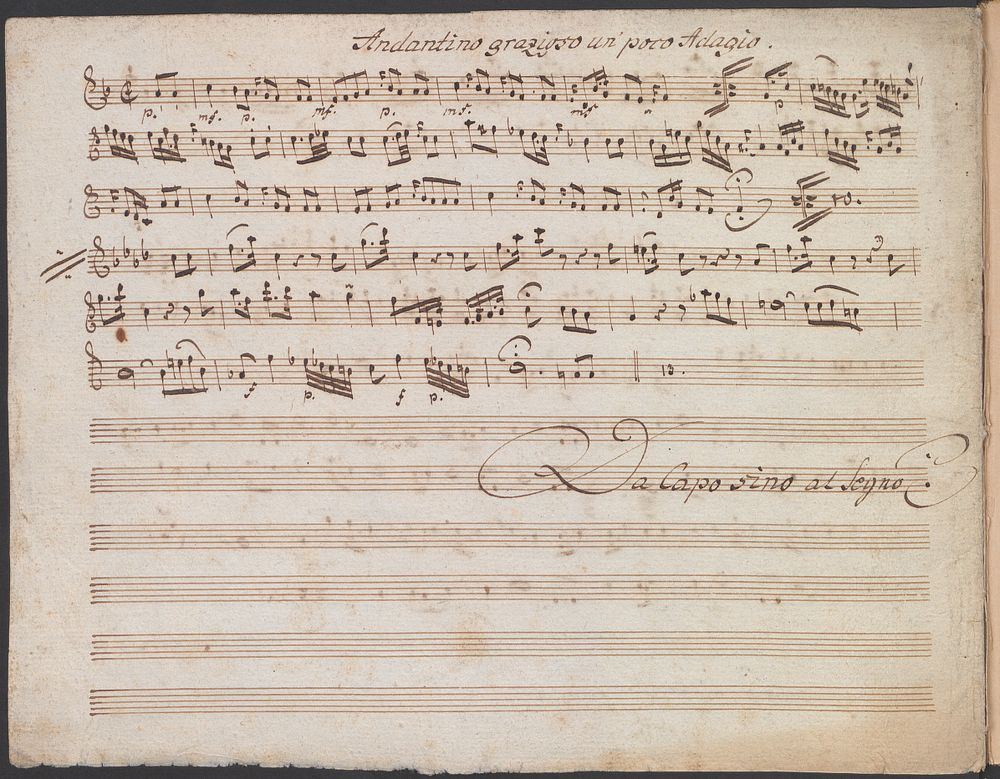 Andantino grazioso un' poco Adagio.
p. mf. p. mf. p. mf. mf p
f p. f p.
13.
Da Capo sino al Segno